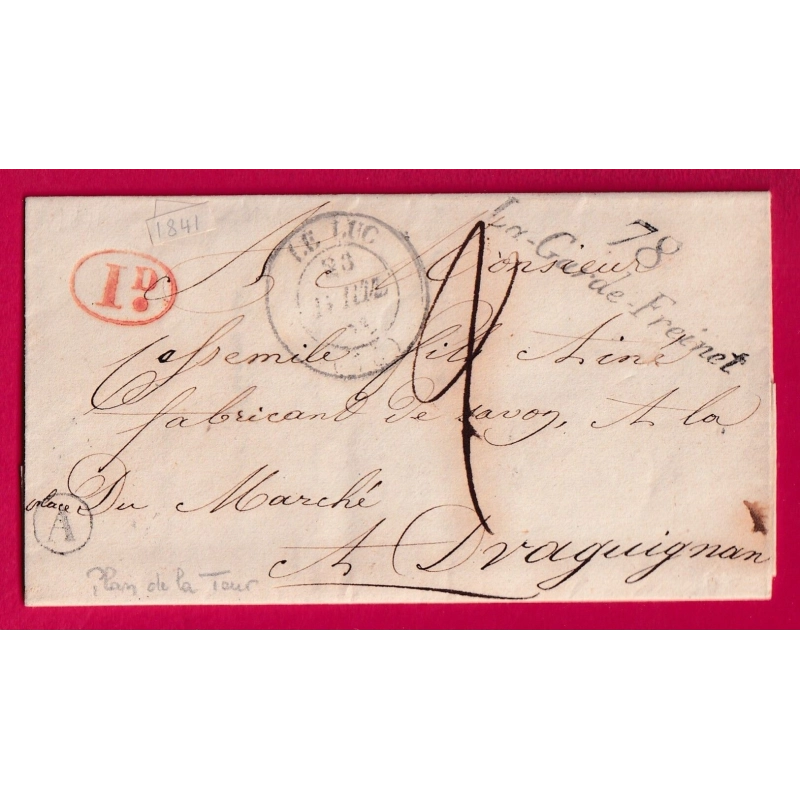 1841
LE LUC
23
1 D.
78
La-Garde-Freinet
A Monsieur
fils Aine
fabricant De savon, A la
place Du Marché
A
A Draguignan
Plan de la Tour